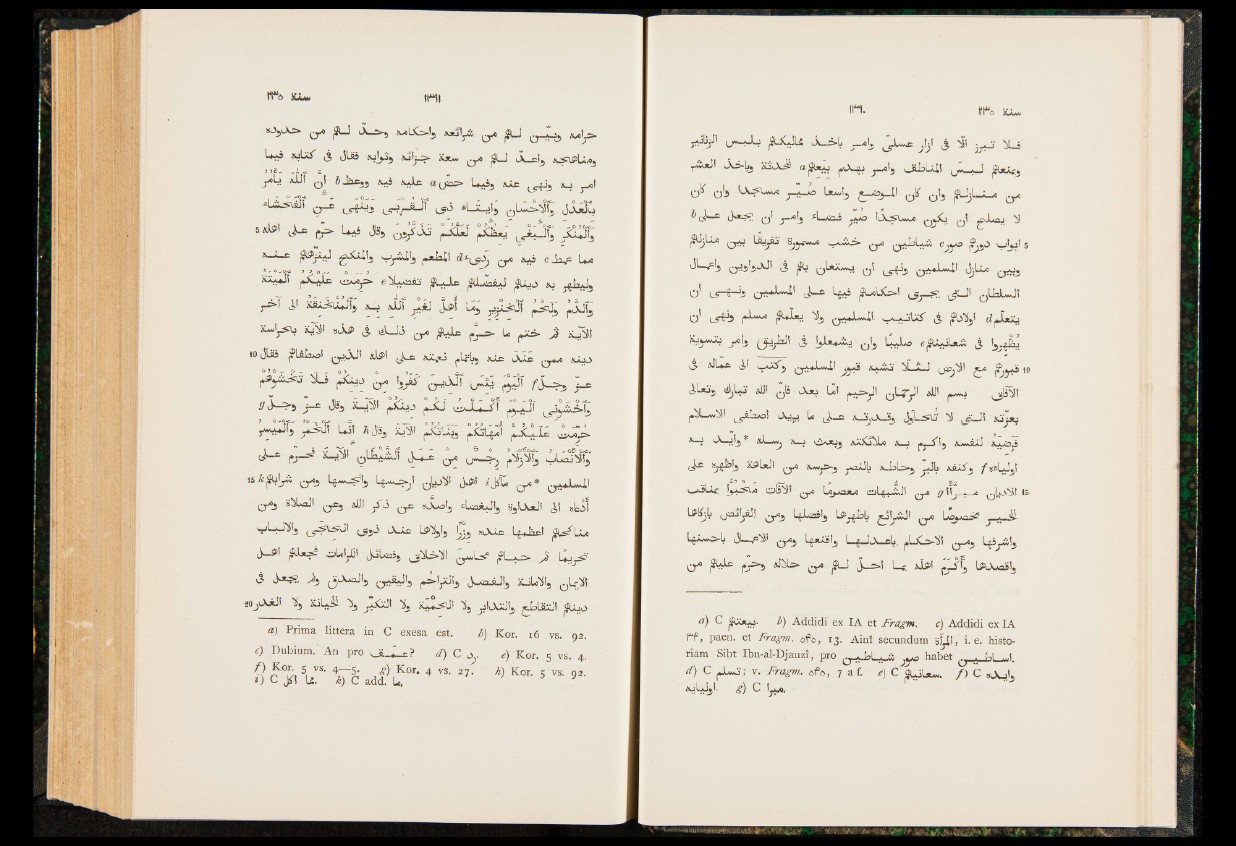 ١٣٩٠ سنة ٢٣٥
فلا تبرز الّا فى ازار عسلىّ وامر باخذ مماليكهم بلبس الزنانير
ومنعهم لبس المناطق وامر بهدم بِيَعهم a المحدثة وباخذ العشر
من منازلهم وان كان الموضع واسعا صيّر مسجدا وان كان
لا يصلح ان يكون مسجدا صيّر فضاء وامر ان يجعل على b
5 ابواب دورهم صور c شياطين من خشب مسمورة تفريقا بين منازلهم
وبين منازل المسلمين ونهى ان يستعان بهم فى الدواوين واعمال
السلطان التى يجرى احكامهم فيها على المسلمين ونهى ان
يتعلم d اولادهم فى كتاتيب المسلمين ولا يعلّمهم مسلم ونهى ان
يُظْهِروا فى شعانينهم e صليبا وان يشمعلوا فى الطريق وامر بتسوية
10 قبورهم مع الارض لئلّا تشبه قبور المسلمين وكتب الى عمّاله فى
الآفاق بسم الله الرحمن الرحيم امّا بعد فانّ الله تبارك وتعالى
بعزّته التى لا تُحاوَل وقدرته على ما يريد اصطفى الاسلام
فرضيه لنفسه واكرم به ملائكته وبعث به رسله *وأيّد به
اولياءه f وكنفه بالبرّ وحاطه بالنصر وحرسه من العاهة واظهره على
15 الاديان مبرّأً g من الشبهات معصوما من الآفات محبوًّا بمناقب
الخير مخصوصا من الشرائع باطهرها وافضلها ومن الفرائض بازكاها
واشرفها ومن الاحكام باعدلها واقنعها ومن الاعمال باحسنها
واقصدها وأكرم اهله بما احلّ لهم من حلاله وحرّم عليهم من
a) C بيعتهم. b) Addidi ex IA et Fragm. c) Addidi ex IA
٣٤, paen. et Fragm. ٥٤٥, 13. Ainî secundum المرآة, i. e. histo-
riam Sibt Ibn-al-Djauzî, pro صور شياطين habet اساطين.
d) C تسلم; v. Fragm. ٥٤٥, 7 a f. e) C سعانينهم. f) C وايده
اوليايه. g) C مبرا.
١٣٩١ سنة ٢٣٥
حرامه وبيّن لهم من شرائعه واحكامه وحدّ لهم من حدوده
ومناهجه واعدّ لهم من سعة جزائه وثوابه فقال فى كتابه فيما
امر به ونهى عنه وفيما حضّ a عليه فيه ووعظ b انّ اللّٰه يَأْمُرُ
بِٱلْعَدْلِ وَٱلْإِحْسَانِ وَإِيتَاءِ ذِى ٱلْقُرْبَى وَيَنْهَى عَنِ ٱلْفَحْشَاءِ
5 وَٱلْمُنْكَرِ وَٱلْبَغْىِ يَعِظُكُمْ لَعَلَّكُمْ تَذَكَّرُونَ وقال فيما حرّم على اهله
مما غمط c فيه من ردىّ d المطعم والمشرب والمنكح لينزّههم عنه
وليطهر به دينهم ليفضّلهم عليهم تفضيلا e حُرِّمَتْ عَلَيْكُمُ ٱلْمَيْتَةُ
وَٱلدَّمُ وَلَحْمُ ٱلْخِنْزِيرِ وَمَا أُهِلَّ لِغَيْرِ ٱللّٰهِ بِهِ وَٱلْمُنْخَنِقَةُ الى آخر
الآية ثم ختم ما حرّم عليهم من ذلك فى هذه الآية بحراسة
10 دينه ممن عَنَدَ عنه وباتمام نعمته على اهله الذين اصطفاهم فقال
عزّ وجلّ f ٱلْيَوْمَ يَئِسَ ٱلَّذِينَ كَفَرُوا مِنْ دِينِكُمْ فَلَا تَخْشَوْهُمْ
وَٱخْشَوْنِى ٱلْيَوْمَ أَكْمَلْتُ لَكُمْ دِينَكُمْ الآيةَ وقال عزّ وجلّ g
حُرِّمَتْ عَلَيْكُمْ أُمَّهَاتُكُمْ وَبَنَاتُكُمْ الآيةَ وقال h إِنَّمَا ٱلْخَمْرُ وَٱلْمَيْسِرُ
وَٱلْأَنْصَابُ وَٱلْأَزْلَامُ رِجْسٌ مِنْ عَمَلِ ٱلشَّيْطَانِ الآيةَ فحرّم على
15 المسلمين *من مآكل i اهل الاديان ارجسها وانجسها ومن شرابهم k
أَدْعاه الى العداوة والبغضاء واصدّه عن ذكر الله وعن الصلاة ومن
مناكحهم اعظمها عنده وزرًا واولاها عند ذوى الحجى والالباب
تحريمًا ثم حباهم محاسنَ الاخلاق وفضائل الكرامات فجعلهم اهل
الايمان والامانة والفضل والتراحُم واليقين والصدق ولم يجعل فى
20 دينهم التقاطع والتدابر ولا الحَمِيّة ولا التكبّر ولا الخيانة ولا الغدر
a) Prima littera in C exesa est. b) Kor. 16 vs. 92.
c) Dubium. An pro عيف? d) C رد. e) Kor. 5 vs. 4.
f) Kor. 5 vs. 4—5. g) Kor. 4 vs. 27. h) Kor. 5 vs. 92.
i) C لما اكل. k) C add. ما.